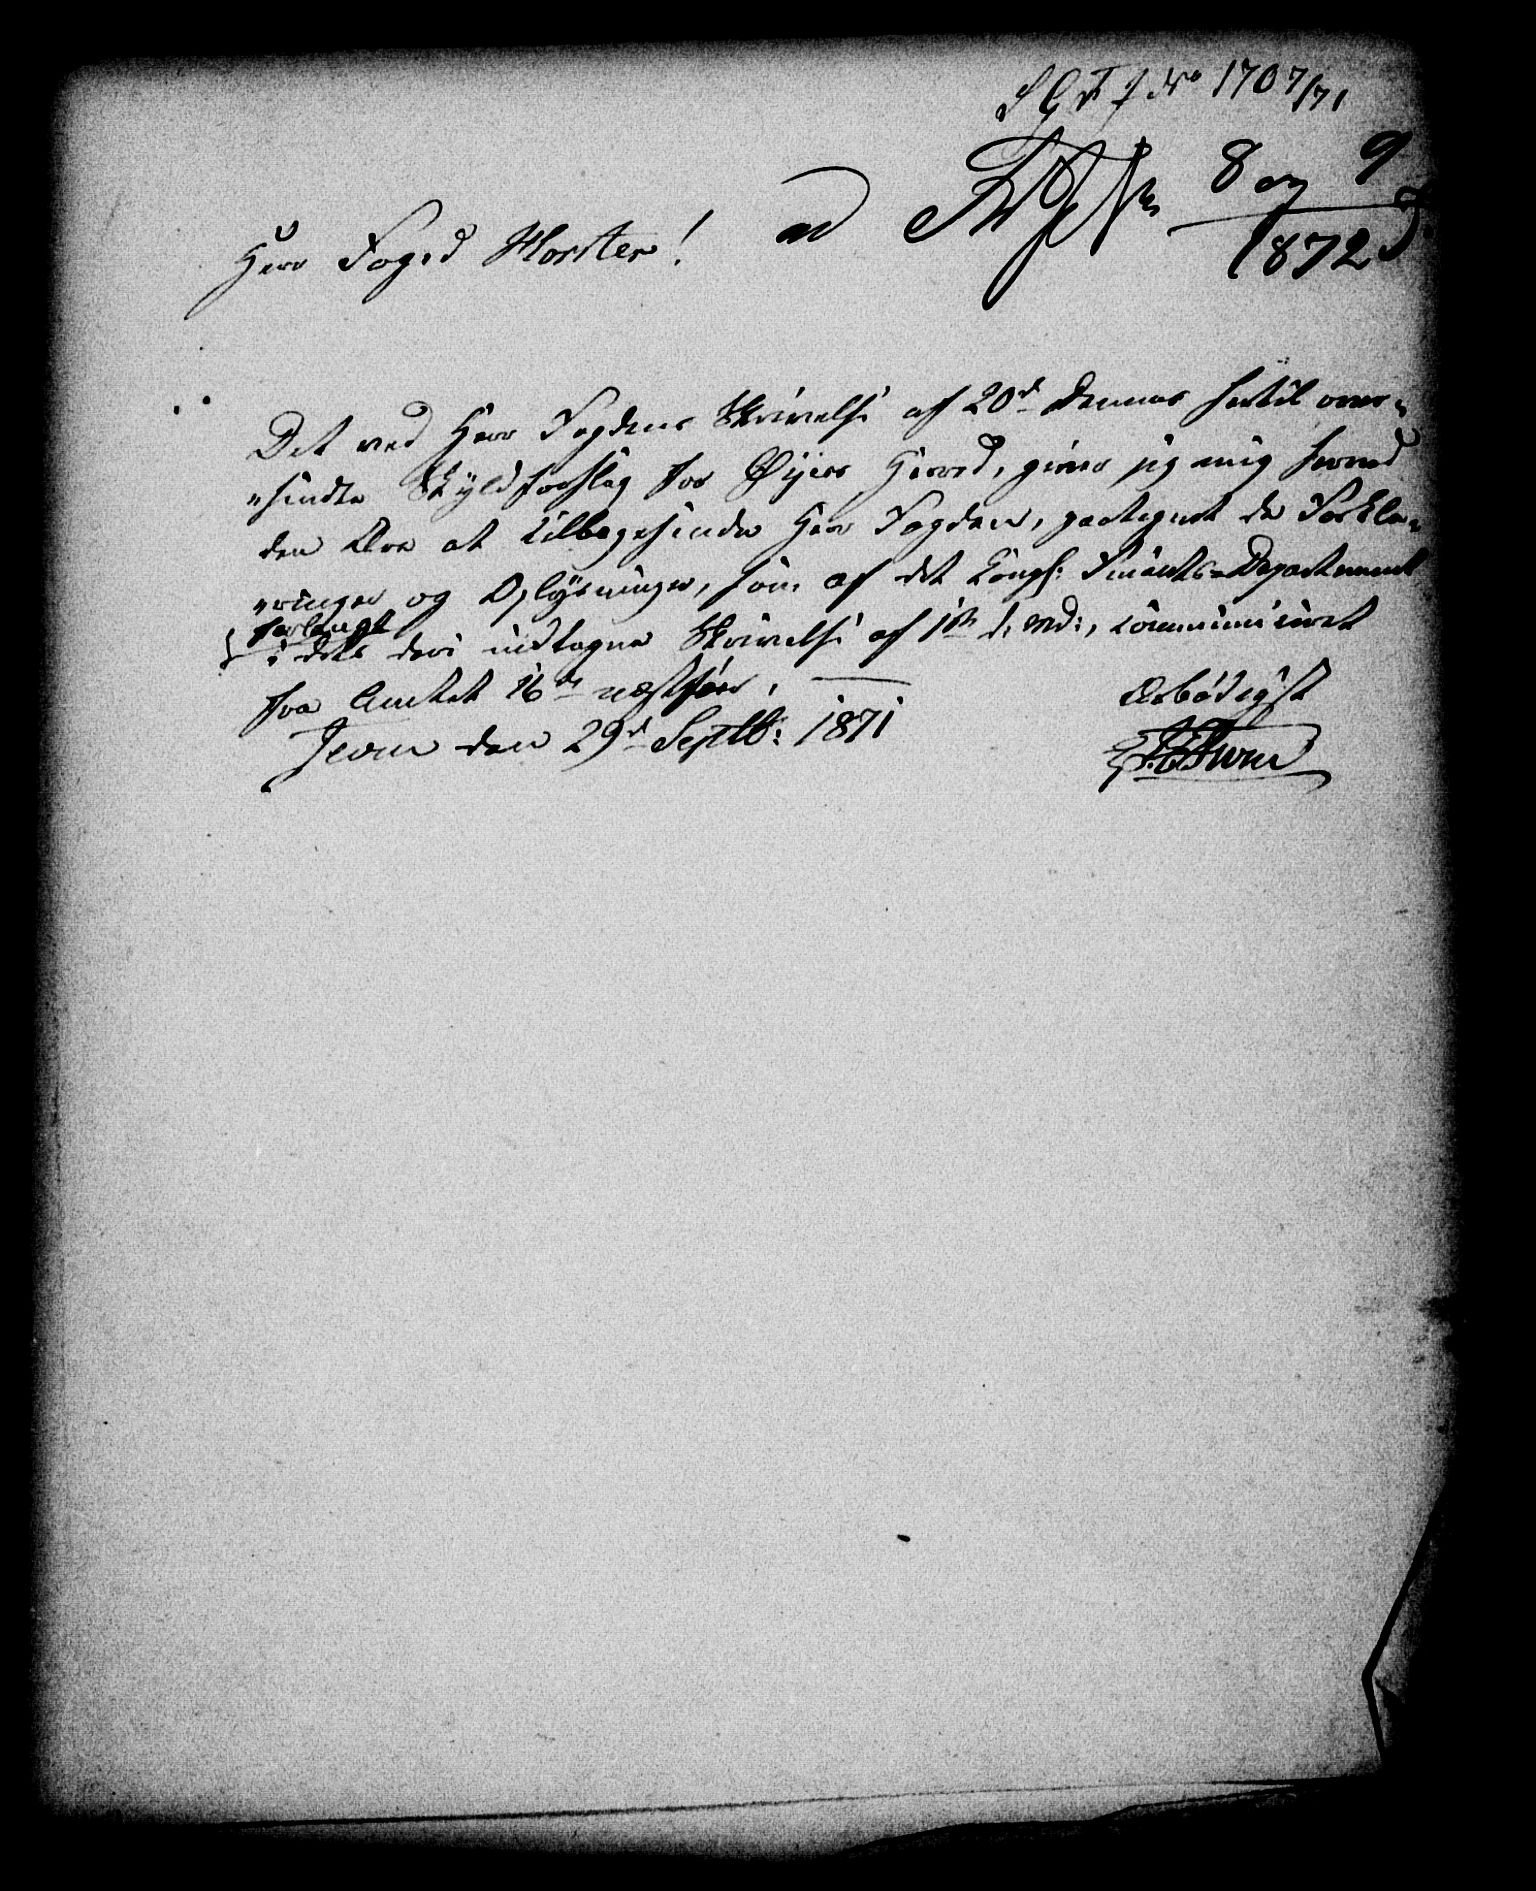 No 1707/71
ad 8 og 9
1872
Herr Foged Morster!
Det ved Herr Fogdens Skrivelse af 20de dennes hertil over-
"sendte Skyldforslag for Øyers Herred, giver jeg mig herved
den Ære at tilbagesende Herr Fogden, paategnet de Forkla-
"ringer og Oplysninger, som af det Kongl: Finants-Departement
forlangt
i dets deri indtagne Skrivelse af 1ste d. Md:, communiceret
fra Amtet 16de næstefter.
Jevne den 29de Septb: 1871
Ærbødigst
Jevne